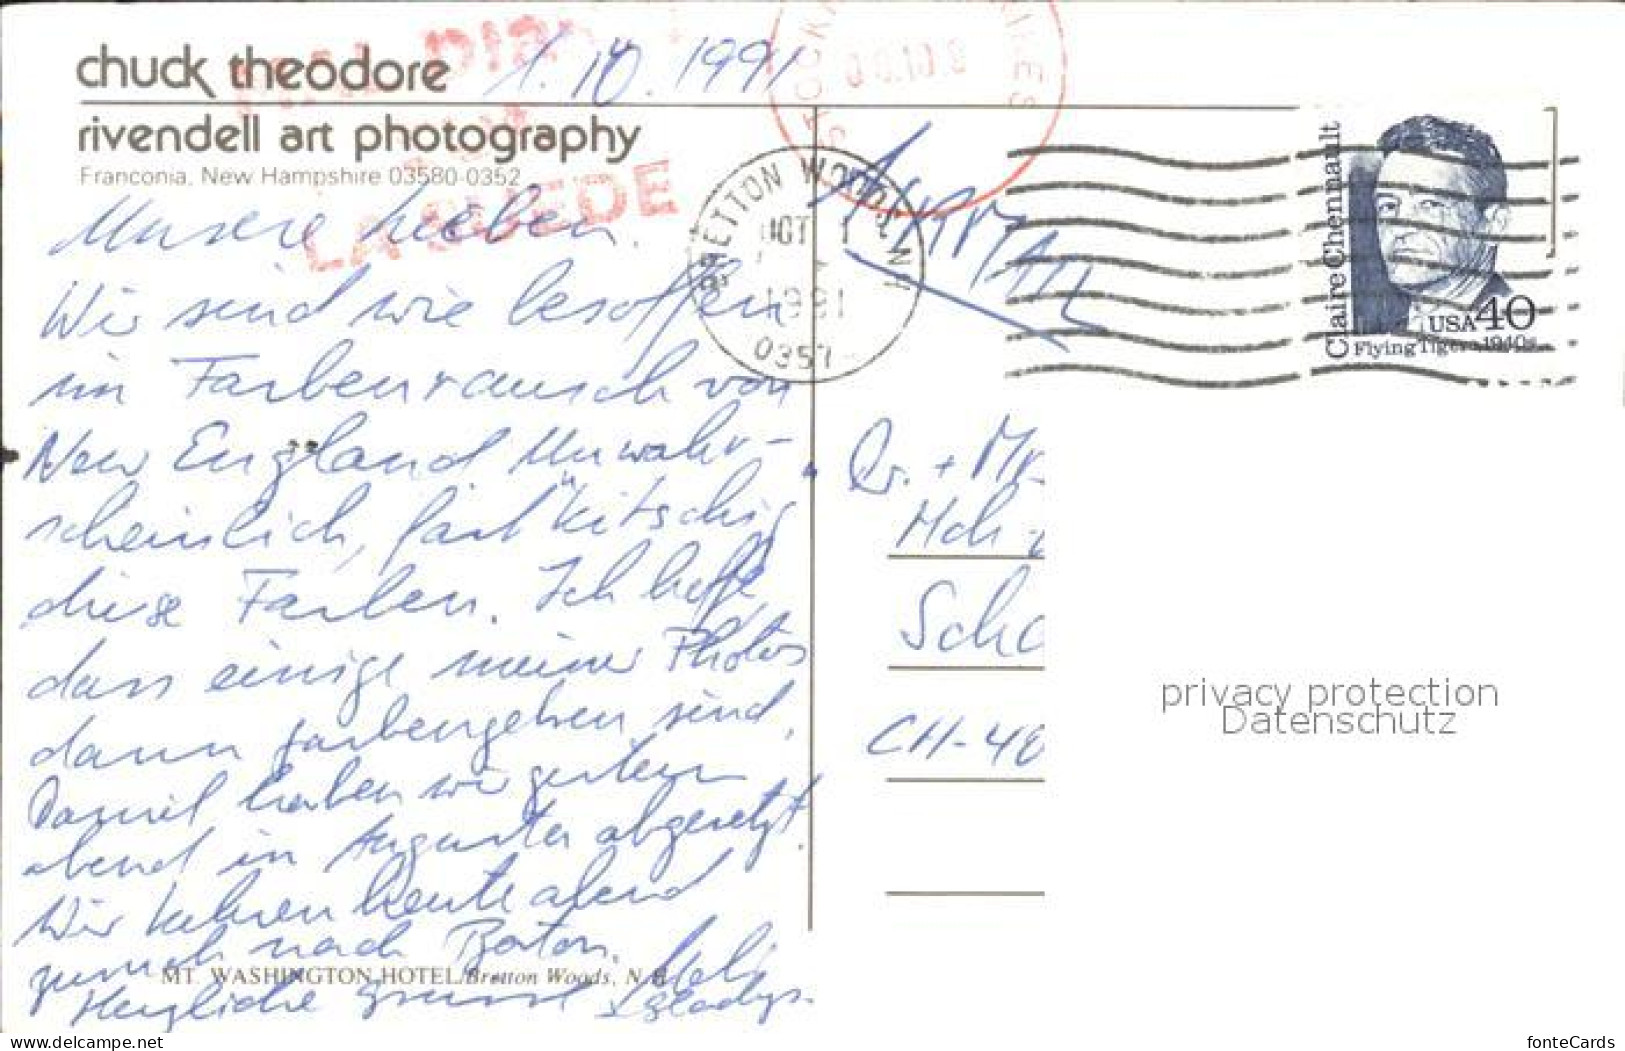 chuck theodore
1.10.1991
rivendell art photography
Franconia, New Hampshire 03580-0352
LA SUEDE
BRETTON WOODS, N
OCT 1
1991
0357
AIRMAIL
Claire Chennault
USA 40
Flying Tigers, 1940s
Unsere Lieben.
Wir sind wie besoffen
im Farbenrausch von
New England. Unwahr-
scheinlich, fast "kitschig"
diese Farben. Ich hoffe,
dass einige meiner Photos
dann farbengetreu sind.
Daniel haben wir gestern
abend in Augusta abgesetzt.
Wir kehren heute abend
zurück nach Boston.
MT. WASHINGTON HOTEL/Bretton Woods, N.H.
Herzliche Grüsse
+ Gladys.
Dr. + Mr
Hch
Sch
CH-48
privacy protection
Datenschutz
www.delcampe.net
fonteCards